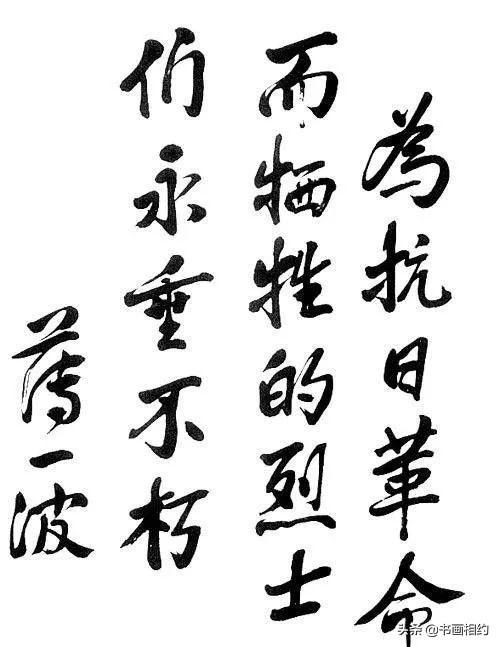 為抗日革命
而牺牲的烈士
们永垂不朽
薄一波
头条 @书画相约